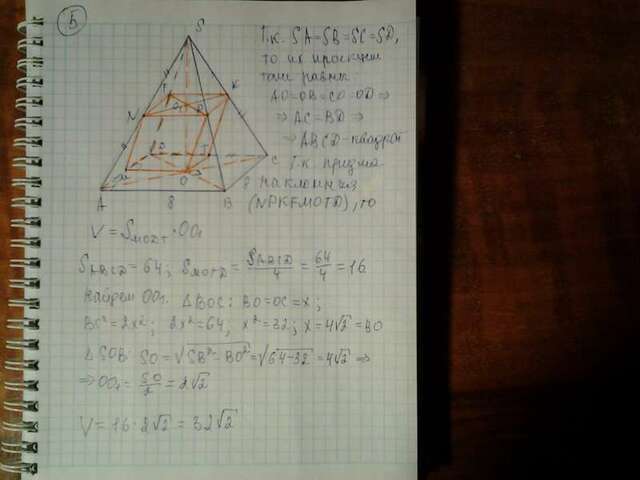 5
Т.к. SA=SB=SC=SD,
то их проекции
тоже равны:
AO=OB=CO=OD ⇒
⇒ AC=BD ⇒
⇒ ABCD-квадрат
Т.к. призма
наклонная
(NPKFMOTD), то
S
N
K
A
B
C
D
O
M
T
8
8
V = S_MODT · OO₁
S_ABCD = 64; S_MOTD = S_ABCD/4 = 64/4 = 16
Найдем OO₁. ΔBOC: BO=OC=x;
BC²=2x²; 2x²=64; x²=32; x=4√2=BO
ΔSOB: SO=√(SB²-BO²)=√(64-32)=4√2 ⇒
⇒ OO₁= SO/2 = 2√2
V = 16·2√2 = 32√2